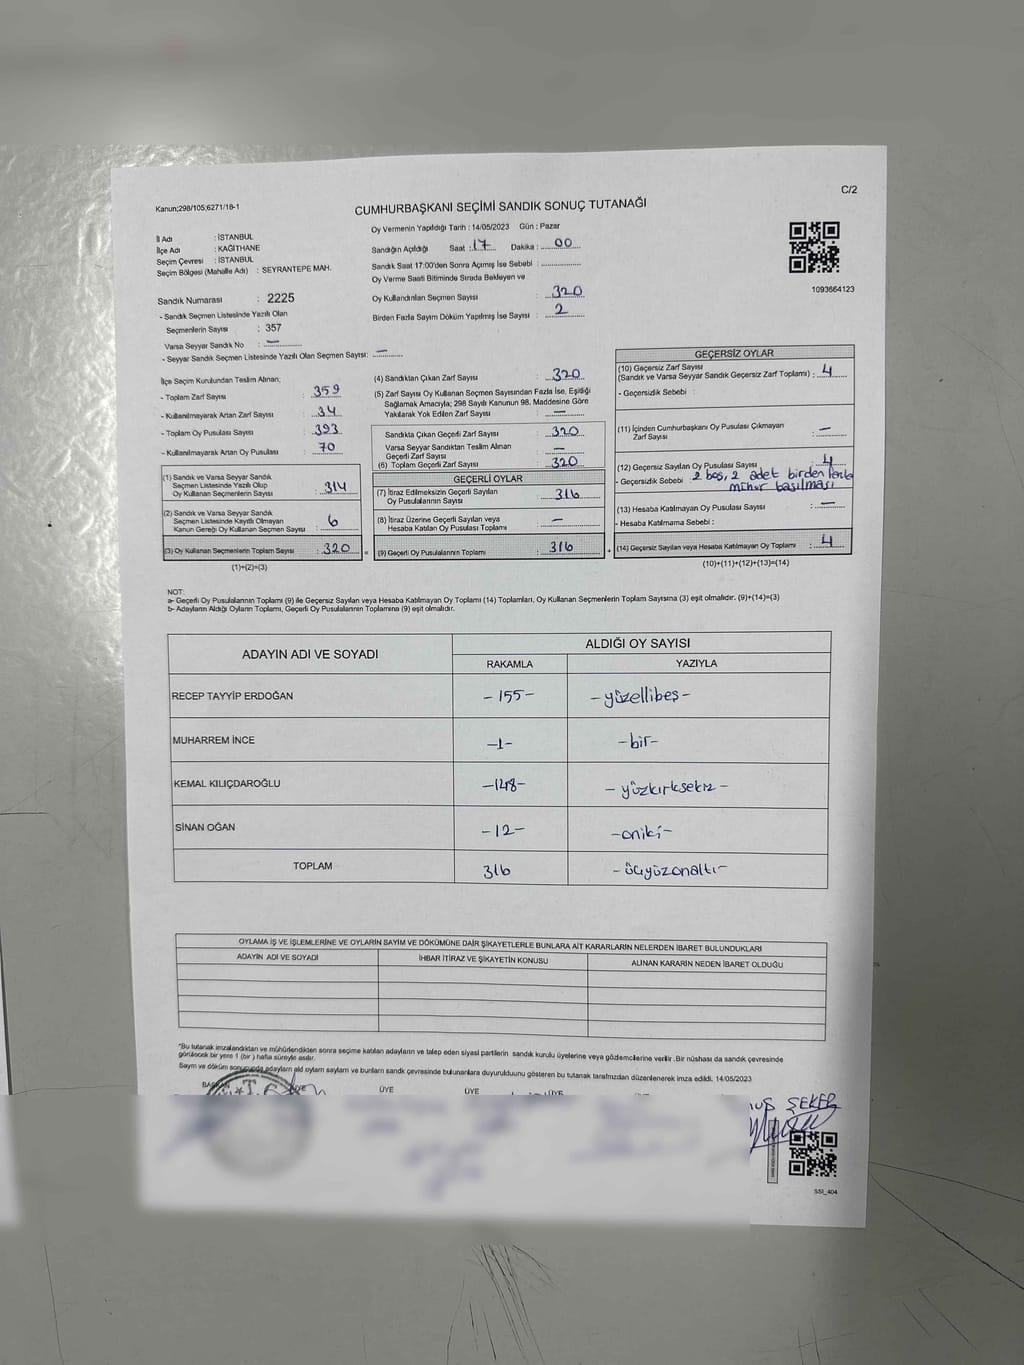 C/2
Kanun;298/105;6271/18-1
CUMHURBAŞKANI SEÇİMİ SANDIK SONUÇ TUTANAĞI
İl Adı : İSTANBUL
İlçe Adı : KAĞITHANE
Seçim Çevresi : İSTANBUL
Seçim Bölgesi (Mahalle Adı) : SEYRANTEPE MAH.
Oy Vermenin Yapıldığı Tarih : 14/05/2023 Gün : Pazar
Sandığın Açıldığı Saat : 17 Dakika : 00
Sandık Saat 17:00'den Sonra Açımış İse Sebebi :
Oy Verme Saati Bitiminde Sırada Bekleyen ve
Oy Kullandırılan Seçmen Sayısı : 320
Birden Fazla Sayım Döküm Yapılmış İse Sayısı : 2
1093664123
Sandık Numarası : 2225
- Sandık Seçmen Listesinde Yazılı Olan
Seçmenlerin Sayısı : 357
Varsa Seyyar Sandık No : —
- Seyyar Sandık Seçmen Listesinde Yazılı Olan Seçmen Sayısı: —
İlçe Seçim Kurulundan Teslim Alınan;
- Toplam Zarf Sayısı : 359
- Kullanılmayarak Artan Zarf Sayısı : 34
- Toplam Oy Pusulası Sayısı : 393
- Kullanılmayarak Artan Oy Pusulası : 70
(1) Sandık ve Varsa Seyyar Sandık
Seçmen Listesinde Yazılı Olup
Oy Kullanan Seçmenlerin Sayısı : 314
(2) Sandık ve Varsa Seyyar Sandık
Seçmen Listesinde Kayıtlı Olmayan
Kanun Gereği Oy Kullanan Seçmen Sayısı : 6
(3) Oy Kullanan Seçmenlerin Toplam Sayısı : 320 =
(1)+(2)=(3)
(4) Sandıktan Çıkan Zarf Sayısı : 320
(5) Zarf Sayısı Oy Kullanan Seçmen Sayısından Fazla İse, Eşitliği
Sağlamak Amacıyla; 298 Sayılı Kanunun 98. Maddesine Göre
Yakılarak Yok Edilen Zarf Sayısı : —
Sandıkta Çıkan Geçerli Zarf Sayısı : 320
Varsa Seyyar Sandıktan Teslim Alınan
Geçerli Zarf Sayısı : —
(6) Toplam Geçerli Zarf Sayısı : 320
GEÇERLİ OYLAR
(7) İtiraz Edilmeksizin Geçerli Sayılan
Oy Pusulalarının Sayısı : 316
(8) İtiraz Üzerine Geçerli Sayılan veya
Hesaba Katılan Oy Pusulası Toplamı : —
(9) Geçerli Oy Pusulalarının Toplamı : 316 +
GEÇERSİZ OYLAR
(10) Geçersiz Zarf Sayısı
(Sandık ve Varsa Seyyar Sandık Geçersiz Zarf Toplamı) : 4
- Geçersizlik Sebebi :
(11) İçinden Cumhurbaşkanı Oy Pusulası Çıkmayan
Zarf Sayısı : —
(12) Geçersiz Sayılan Oy Pusulası Sayısı : 4
- Geçersizlik Sebebi : 2 boş, 2 adet birden fazla
mühür basılması
(13) Hesaba Katılmayan Oy Pusulası Sayısı : —
- Hesaba Katılmama Sebebi :
(14) Geçersiz Sayılan veya Hesaba Katılmayan Oy Toplamı : 4
(10)+(11)+(12)+(13)=(14)
NOT:
a- Geçerli Oy Pusulalarının Toplamı (9) ile Geçersiz Sayılan veya Hesaba Katılmayan Oy Toplamı (14) Toplamları, Oy Kullanan Seçmenlerin Toplam Sayısına (3) eşit olmalıdır. (9)+(14)=(3)
b- Adayların Aldığı Oyların Toplamı, Geçerli Oy Pusulalarının Toplamına (9) eşit olmalıdır.
ADAYIN ADI VE SOYADI
ALDIĞI OY SAYISI
RAKAMLA YAZIYLA
RECEP TAYYİP ERDOĞAN -155- -yüzellibeş-
MUHARREM İNCE -1- -bir-
KEMAL KILIÇDAROĞLU -148- -yüzkırksekiz-
SİNAN OĞAN -12- -oniki-
TOPLAM 316 -üçyüzonaltı-
OYLAMA İŞ VE İŞLEMLERİNE VE OYLARIN SAYIM VE DÖKÜMÜNE DAİR ŞİKAYETLERLE BUNLARA AİT KARARLARIN NELERDEN İBARET BULUNDUKLARI
ADAYIN ADI VE SOYADI İHBAR İTİRAZ VE ŞİKAYETİN KONUSU ALINAN KARARIN NEDEN İBARET OLDUĞU
*Bu tutanak imzalandıktan ve mühürlendikten sonra seçime katılan adayların ve talep eden siyasi partilerin sandık kurulu üyelerine veya gözlemcilerine verilir .Bir nüshası da sandık çevresinde
görülecek bir yere 1 (bir ) hafta süreyle asılır.
Sayım ve döküm sonucunda adayların aldığı oyların sayıları ve bunların sandık çevresinde bulunanlara duyurulduğunu gösteren bu tutanak tarafımızdan düzenlenerek imza edildi. 14/05/2023
ÜYE ÜYE ÜYE
ŞEKER
SSI_404